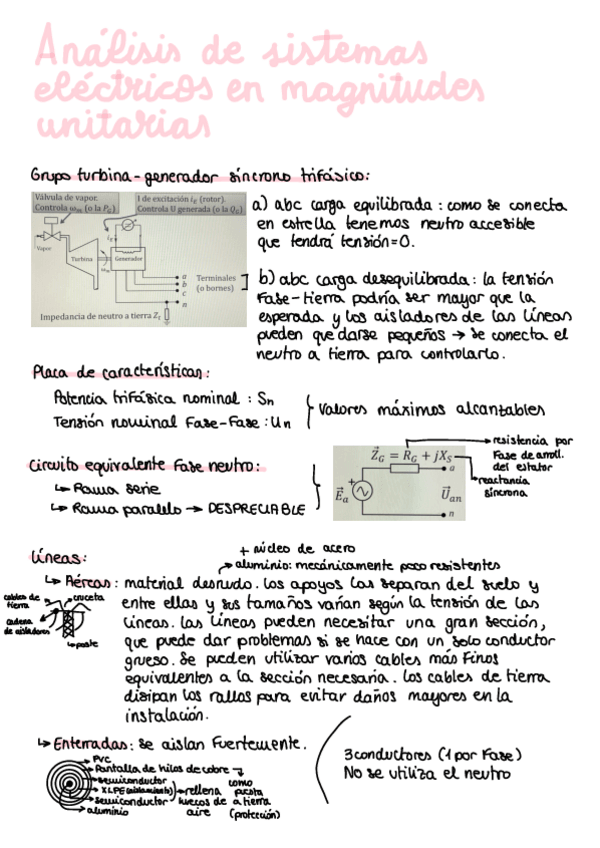 Análisis de sistemas
eléctricos en magnitudes
unitarias
Grupo turbina-generador síncrono trifásico:
Válvula de vapor.
Controla ωm (o la PG)
I de excitación iE (rotor).
Controla U generada (o la QG)
Vapor
Turbina
ωm
iE
Generador
a
b
c
n
Terminales
(o bornes)
Impedancia de neutro a tierra Zt
a) abc carga equilibrada: como se conecta
en estrella tenemos neutro accesible
que tendrá tensión=0.
b) abc carga desequilibrada: la tensión
Fase-tierra podría ser mayor que la
esperada y los aisladores de las líneas
pueden quedarse pequeños → se conecta el
neutro a tierra para controlarlo.
Placa de características:
Potencia trifásica nominal: Sn
Tensión nominal Fase-Fase: Un
Valores máximos alcantables
Circuito equivalente Fase neutro:
↳ Rama serie
↳ Rama paralelo → DESPRECIABLE
Z⃗G = RG + jXS
a
E⃗a
+
U⃗an
n
resistencia por
Fase de arroll.
del estator
reactancia
síncrona
Líneas:
+ núcleo de acero
→ aluminio: mecánicamente poco resistentes
↳ Aéreas: material desnudo. Los apoyos las separan del suelo y
entre ellas y sus tamaños varían según la tensión de las
líneas. Las líneas pueden necesitar una gran sección,
que puede dar problemas si se hace con un solo conductor
grueso. Se pueden utilizar varios cables más finos
equivalentes a la sección necesaria. Los cables de tierra
disipan los rallos para evitar daños mayores en la
instalación.
cables de
tierra
cruceta
cadena
de aisladores
poste
↳ Enterradas: se aislan Fuertemente.
PVC
Pantalla de hilos de cobre
semiconductor
XLPE (aislamiento)
semiconductor
aluminio
rellena
huecos de
aire
como
puesta
a tierra
(protección)
3 conductores (1 por Fase)
No se utiliza el neutro